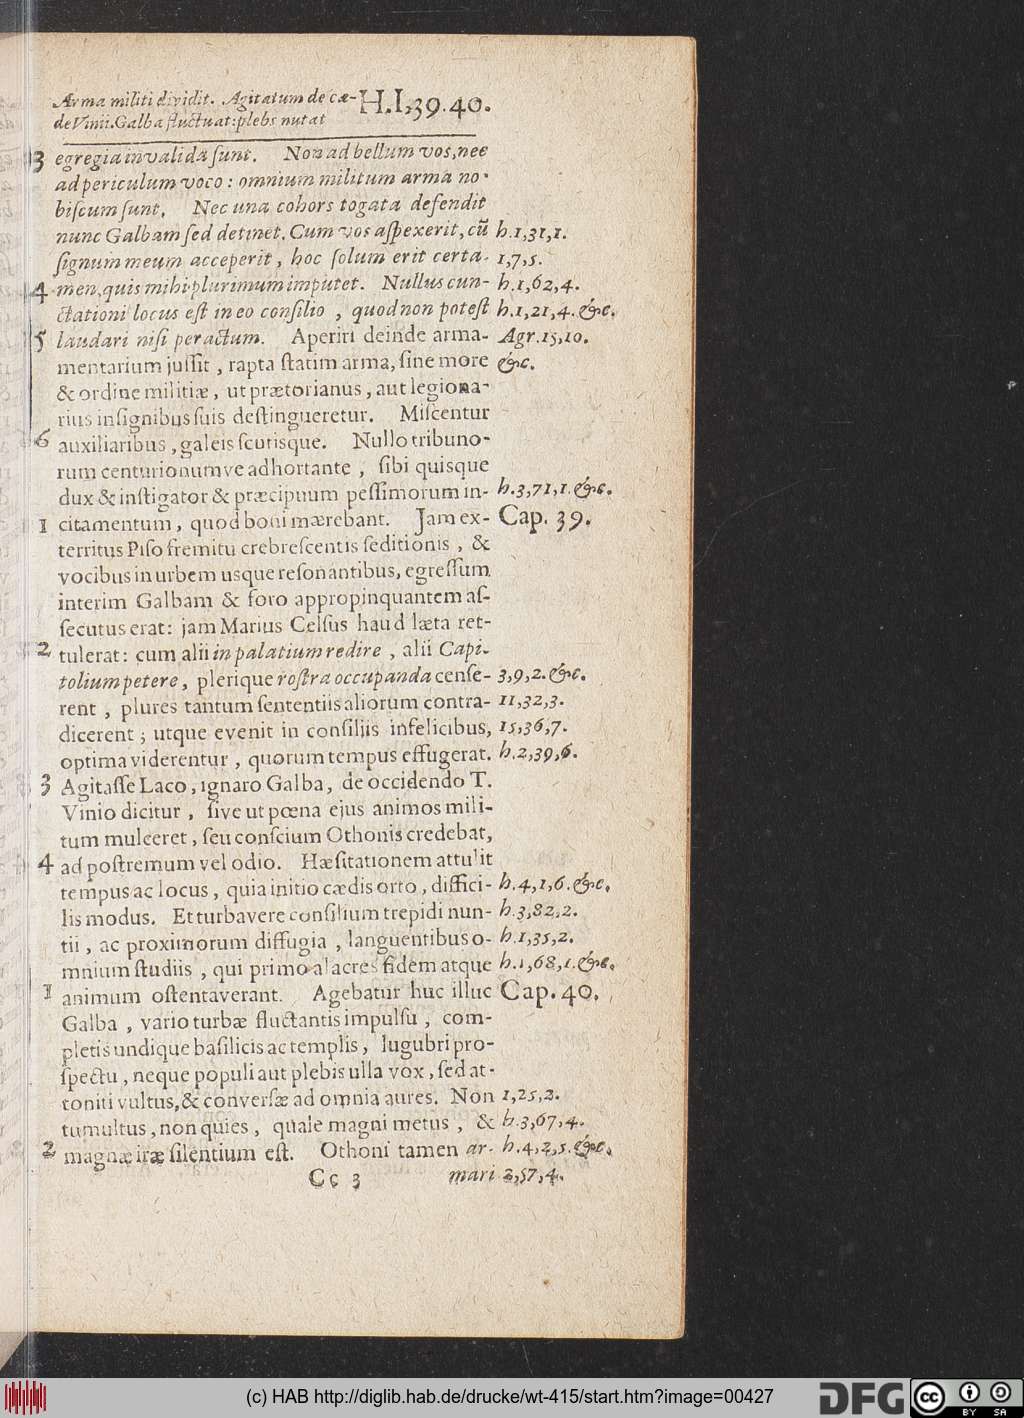 Arma militi dividit. Agitatum de cæ- H.I,39.40.
de Vinii. Galba fluctuat: plebs nutat
3 egregia invalida ſunt. Non ad bellum vos, nec
ad periculum voco: omnium militum arma no-
biſcum ſunt. Nec una cohors togata defendit
nunc Galbam ſed detinet. Cum vos aſpexerit, cū h.1,31,1.
ſignum meum acceperit, hoc ſolum erit certa- 1,7,5.
4 men, quis mihi plurimum imputet. Nullus cun- h.1,62,4.
ctationi locus eſt in eo conſilio, quod non poteſt h.1,21,4. &c.
5 laudari niſi peractum. Aperiri deinde arma- Agr.15,10.
mentarium juſſit, rapta ſtatim arma, ſine more &c.
& ordine militiæ, ut prætorianus, aut legiona-
rius inſignibus ſuis deſtingueretur. Miſcentur
6 auxiliaribus, galeis ſcutisque. Nullo tribuno-
rum centurionumve adhortante, ſibi quisque
dux & inſtigator & præcipuum peſſimorum in- h.3,71,1. &c.
1 citamentum, quod boni mærebant. Jam ex- Cap. 39.
territus Piſo fremitu crebreſcentis ſeditionis, &
vocibus in urbem usque reſonantibus, egreſſum
interim Galbam & foro appropinquantem aſ-
ſecutus erat: jam Marius Celſus haud læta ret-
2 tulerat: cum alii in palatium redire, alii Capi-
tolium petere, plerique roſtra occupanda cenſe- 3,9,2. &c.
rent, plures tantum ſententiis aliorum contra- 11,32,3.
dicerent; utque evenit in conſiliis infelicibus, 15,36,7.
optima viderentur, quorum tempus effugerat. h.2,39,6.
3 Agitaſſe Laco, ignaro Galba, de occidendo T.
Vinio dicitur, ſive ut pœna ejus animos mili-
tum mulceret, ſeu conſcium Othonis credebat,
4 ad poſtremum vel odio. Hæſitationem attulit
tempus ac locus, quia initio cædis orto, diffici- h.4,1,6. &c.
lis modus. Et turbavere conſilium trepidi nun- h.3,82,2.
tii, ac proximorum diffugia, languentibus o- h.1,35,2.
mnium ſtudiis, qui primo alacres fidem atque h.1,68,1. &c.
1 animum oſtentaverant. Agebatur huc illuc Cap. 40.
Galba, vario turbæ fluctantis impulſu, com-
pletis undique baſilicis ac templis, lugubri pro-
ſpectu, neque populi aut plebis ulla vox, ſed at-
toniti vultus, & converſæ ad omnia aures. Non 1,25,2.
tumultus, non quies, quale magni metus, & h.3,67,4.
2 magnæ iræ ſilentium eſt. Othoni tamen ar- h.4,2,5. &c.
Cc 3 mari 2,57,4.
(c) HAB http://diglib.hab.de/drucke/wt-415/start.htm?image=00427
DFG
cc BY SA